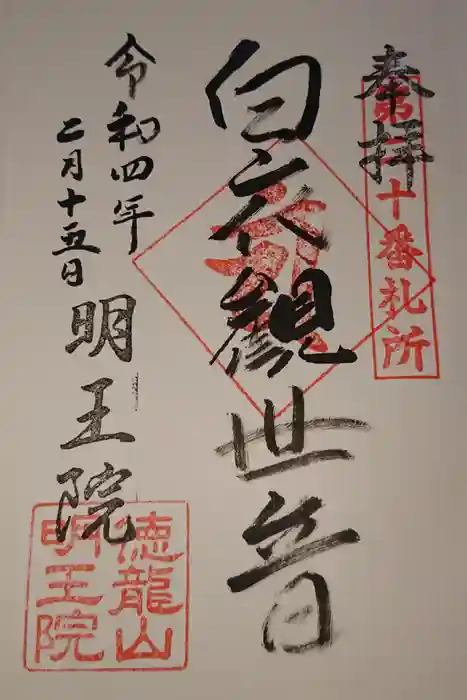 奉拝
十番札所
白衣観世音
令和四年
二月十五日
明王院
徳龍山
明王院